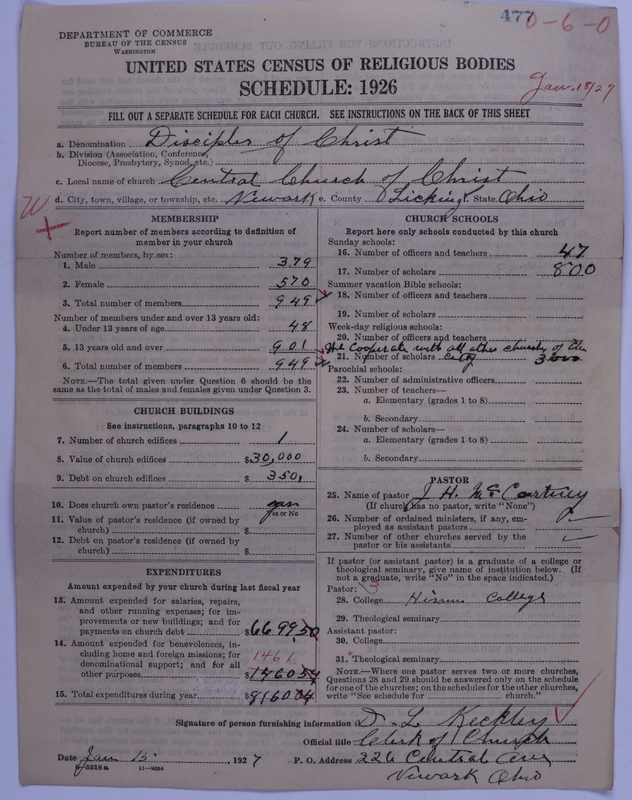 477
0-6-0
DEPARTMENT OF COMMERCE
BUREAU OF THE CENSUS
WASHINGTON
UNITED STATES CENSUS OF RELIGIOUS BODIES
SCHEDULE: 1926
Jan. 15/27
FILL OUT A SEPARATE SCHEDULE FOR EACH CHURCH. SEE INSTRUCTIONS ON THE BACK OF THIS SHEET
a. Denomination Disciples of Christ
b. Division (Association, Conference,
Diocese, Presbytery, Synod, etc.)
c. Local name of church Central Church of Christ
d. City, town, village, or township, etc. Newark e. County Licking f. State Ohio
W
MEMBERSHIP
Report number of members according to definition of
member in your church
Number of members, by sex:
1. Male 379
2. Female 570
3. Total number of members 949
Number of members under and over 13 years old:
4. Under 13 years of age 48
5. 13 years old and over 901
6. Total number of members 949
NOTE.—The total given under Question 6 should be
same as the total of males and females given under Question 3.
CHURCH BUILDINGS
See instructions, paragraphs 10 to 12
7. Number of church edifices 1
8. Value of church edifices $30,000
9. Debt on church edifices $ 350,
10. Does church own pastor's residence
Yes or No
11. Value of pastor's residence (if owned by
church) $
12. Debt on pastor's residence (if owned by
church) $
EXPENDITURES
Amount expended by your church during last fiscal year
13. Amount expended for salaries, repairs,
and other running expenses; for im-
provements or new buildings; and for
payments on church debt $6699.50
14. Amount expended for benevolences, in-
cluding home and foreign missions; for
denominational support; and for all 1461
other purposes $1460.54
15. Total expenditures during year $8160.04
CHURCH SCHOOLS
Report here only schools conducted by this church
Sunday schools:
16. Number of officers and teachers 47
17. Number of scholars 800
Summer vacation Bible schools:
18. Number of officers and teachers
19. Number of scholars
Week-day religious schools:
20. Number of officers and teachers
We Cooperate with all other churches of the
21. Number of scholars City 3000
Parochial schools:
22. Number of administrative officers
23. Number of teachers—
a. Elementary (grades 1 to 8)
b. Secondary
24. Number of scholars—
a. Elementary (grades 1 to 8)
b. Secondary
PASTOR
25. Name of pastor J. H. McCartney
(If church has no pastor, write "None")
26. Number of ordained ministers, if any, em-
ployed as assistant pastors
27. Number of other churches served by the
pastor or his assistants
If pastor (or assistant pastor) is a graduate of a college or
theological seminary, give name of institution below. (If
not a graduate, write "No" in the space indicated.)
Pastor:
28. College Hiram College
29. Theological seminary
Assistant pastor:
30. College
31. Theological seminary
NOTE.—Where one pastor serves two or more churches,
Questions 28 and 29 should be answered only on the schedule
for one of the churches; on the schedules for the other churches,
write "See schedule for church."
Signature of person furnishing information D. L. Keckley
Official title Clerk of Church
Date Jan 15, 1927 P. O. Address 226 Central Ave
Newark Ohio
8-5518a 11-9084